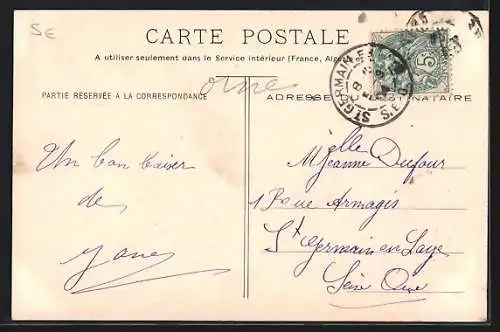 SE
CARTE POSTALE
A utiliser seulement dans le Service intérieur (France, Algérie
orne
PARTIE RÉSERVÉE A LA CORRESPONDANCE
ADRESSE DESTINATAIRE
ST GERMAIN
5
Un bon baiser
de
Melle Jeanne Dufour
1 Rue Armagis
St Germain en Laye
Seine Oise